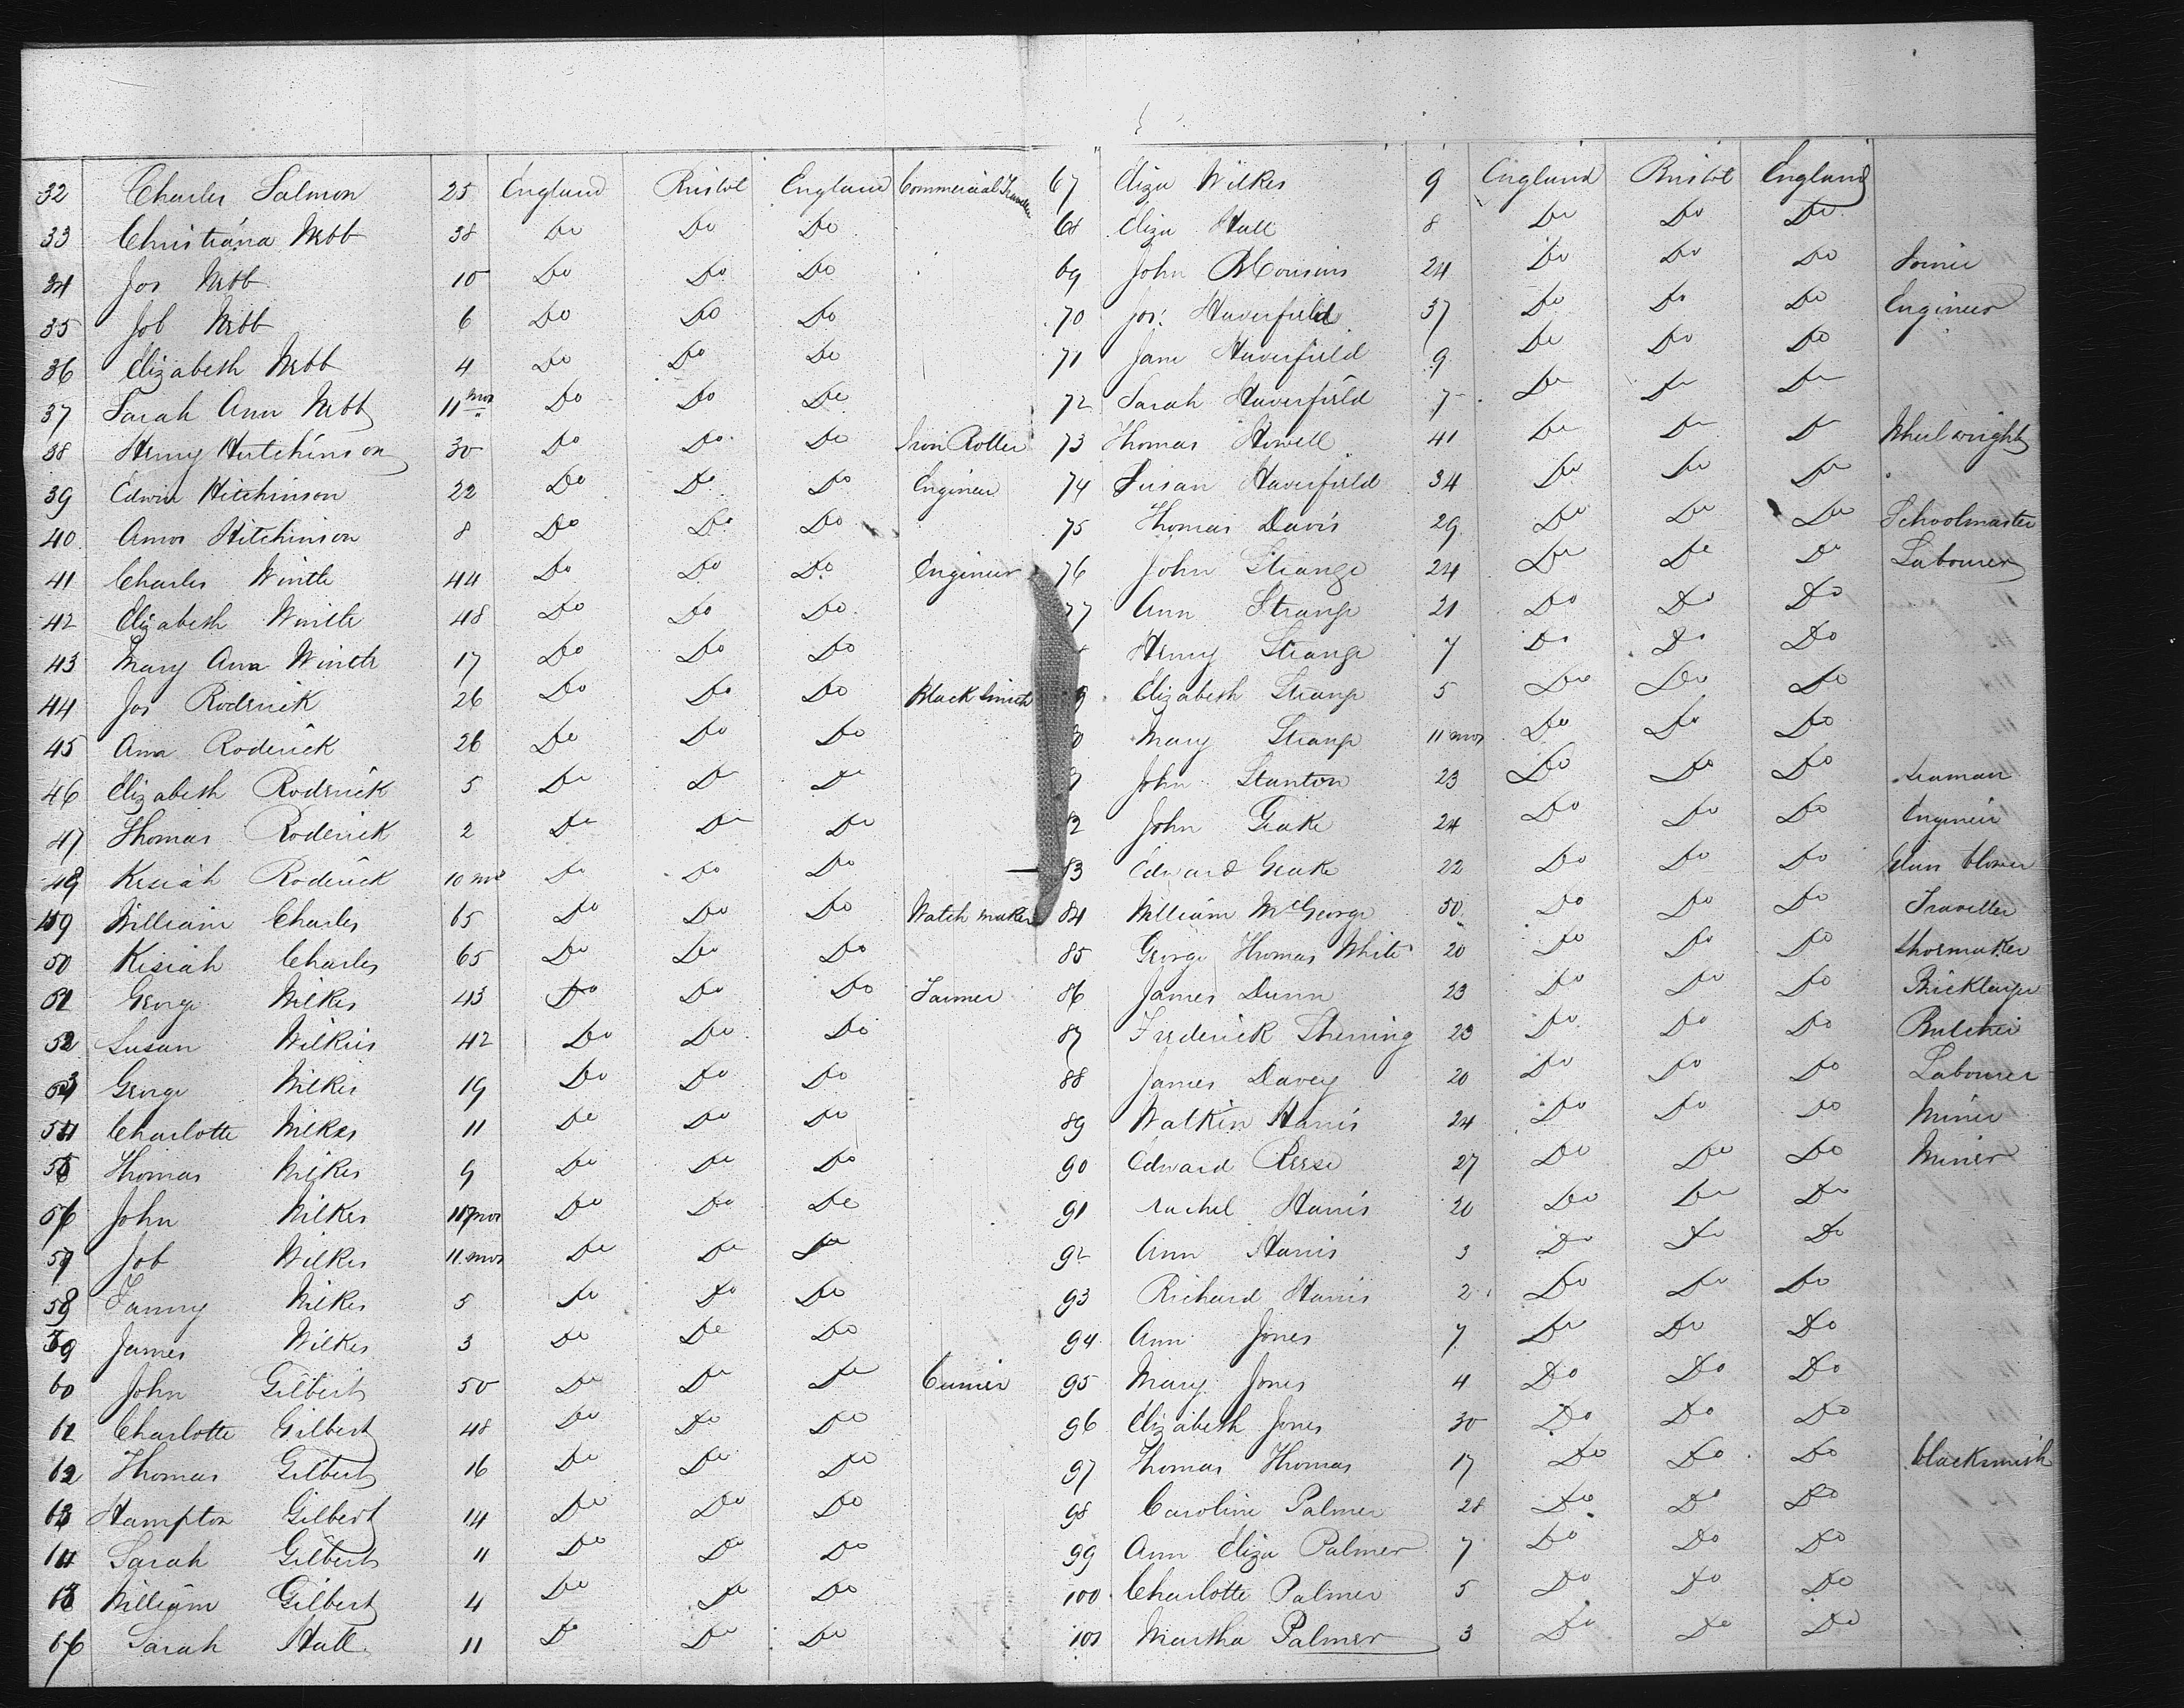 32 Charles Salmon 25 England Bristol England Commercial Traveller
33 Christiana Webb 38 Do Do Do
34 Jos Webb 10 Do Do Do
35 Job Webb 6 Do Do Do
36 Elizabeth Webb 4 Do Do Do
37 Sarah Ann Webb 11 mos Do Do Do
38 Henry Hutchinson 30 Do Do Do Iron Roller
39 Edwin Hitchinson 22 Do Do Do Engineer
40 Amos Hitchinson 8 Do Do Do
41 Charles Wintle 44 Do Do Do Engineer
42 Elizabeth Wintle 48 Do Do Do
43 Mary Ann Wintle 17 Do Do Do
44 Jos Roderick 26 Do Do Do Black Smith
45 Ann Roderick 26 Do Do Do
46 Elizabeth Roderick 5 Do Do Do
47 Thomas Roderick 2 Do Do Do
48 Kesiah Roderick 10 mos Do Do Do
49 William Charles 65 Do Do Do Watch maker
50 Kesiah Charles 65 Do Do Do
51 George Wilkes 43 Do Do Do Farmer
52 Susan Wilkes 42 Do Do Do
53 George Wilkes 19 Do Do Do
54 Charlotte Wilkes 11 Do Do Do
55 Thomas Wilkes 9 Do Do Do
56 John Wilkes mos Do Do Do
57 Job Wilkes 11 mos Do Do Do
58 Fanny Wilkes 5 Do Do Do
59 James Wilkes 3 Do Do Do
60 John Gilbert 50 Do Do Do Currier
61 Charlotte Gilbert 48 Do Do Do
62 Thomas Gilbert 16 Do Do Do
63 Hampton Gilbert 14 Do Do Do
64 Sarah Gilbert 11 Do Do Do
65 William Gilbert 4 Do Do Do
66 Sarah Hall 11 Do Do Do
67 Eliza Wilkes 9 England Bristol England
68 Eliza Hall 8 Do Do Do
69 John 24 Do Do Do Joiner
70 Jos. Haverfield 37 Do Do Do Engineer
71 Jane Haverfield 9 Do Do Do
72 Sarah Haverfield 7 Do Do Do
73 Thomas Howell 41 Do Do Do Wheelwright
74 Susan Haverfield 34 Do Do Do
75 Thomas Davis 29 Do Do Do Schoolmaster
76 John Strange 24 Do Do Do Labourer
77 Ann Strange 21 Do Do Do
Henry Strange 7 Do Do Do
9 Elizabeth Strange 5 Do Do Do
0 Mary Strange 11 mos Do Do Do
John Stanton 23 Do Do Do Seaman
82 John Geake 24 Do Do Do Engineer
83 Edward Geake 22 Do Do Do Glass blower
84 William McGeorge 50 Do Do Do Traveller
85 George Thomas White 20 Do Do Do Shoemaker
86 James Dunn 23 Do Do Do Bricklayer
87 Frederick Sherring 23 Do Do Do Butcher
88 James Davey 20 Do Do Do Labourer
89 Watkin Harris 24 Do Do Do Miner
90 Edward Reese 27 Do Do Do Miner
91 Rachel Harris 20 Do Do Do
92 Ann Harris 3 Do Do Do
93 Richard Harris 2 Do Do Do
94 Ann Jones 7 Do Do Do
95 Mary Jones 4 Do Do Do
96 Elizabeth Jones 30 Do Do Do
97 Thomas Thomas 17 Do Do Do blacksmith
98 Caroline Palmer 28 Do Do Do
99 Ann Eliza Palmer 7 Do Do Do
100 Charlotte Palmer 5 Do Do Do
101 Martha Palmer 3 Do Do Do